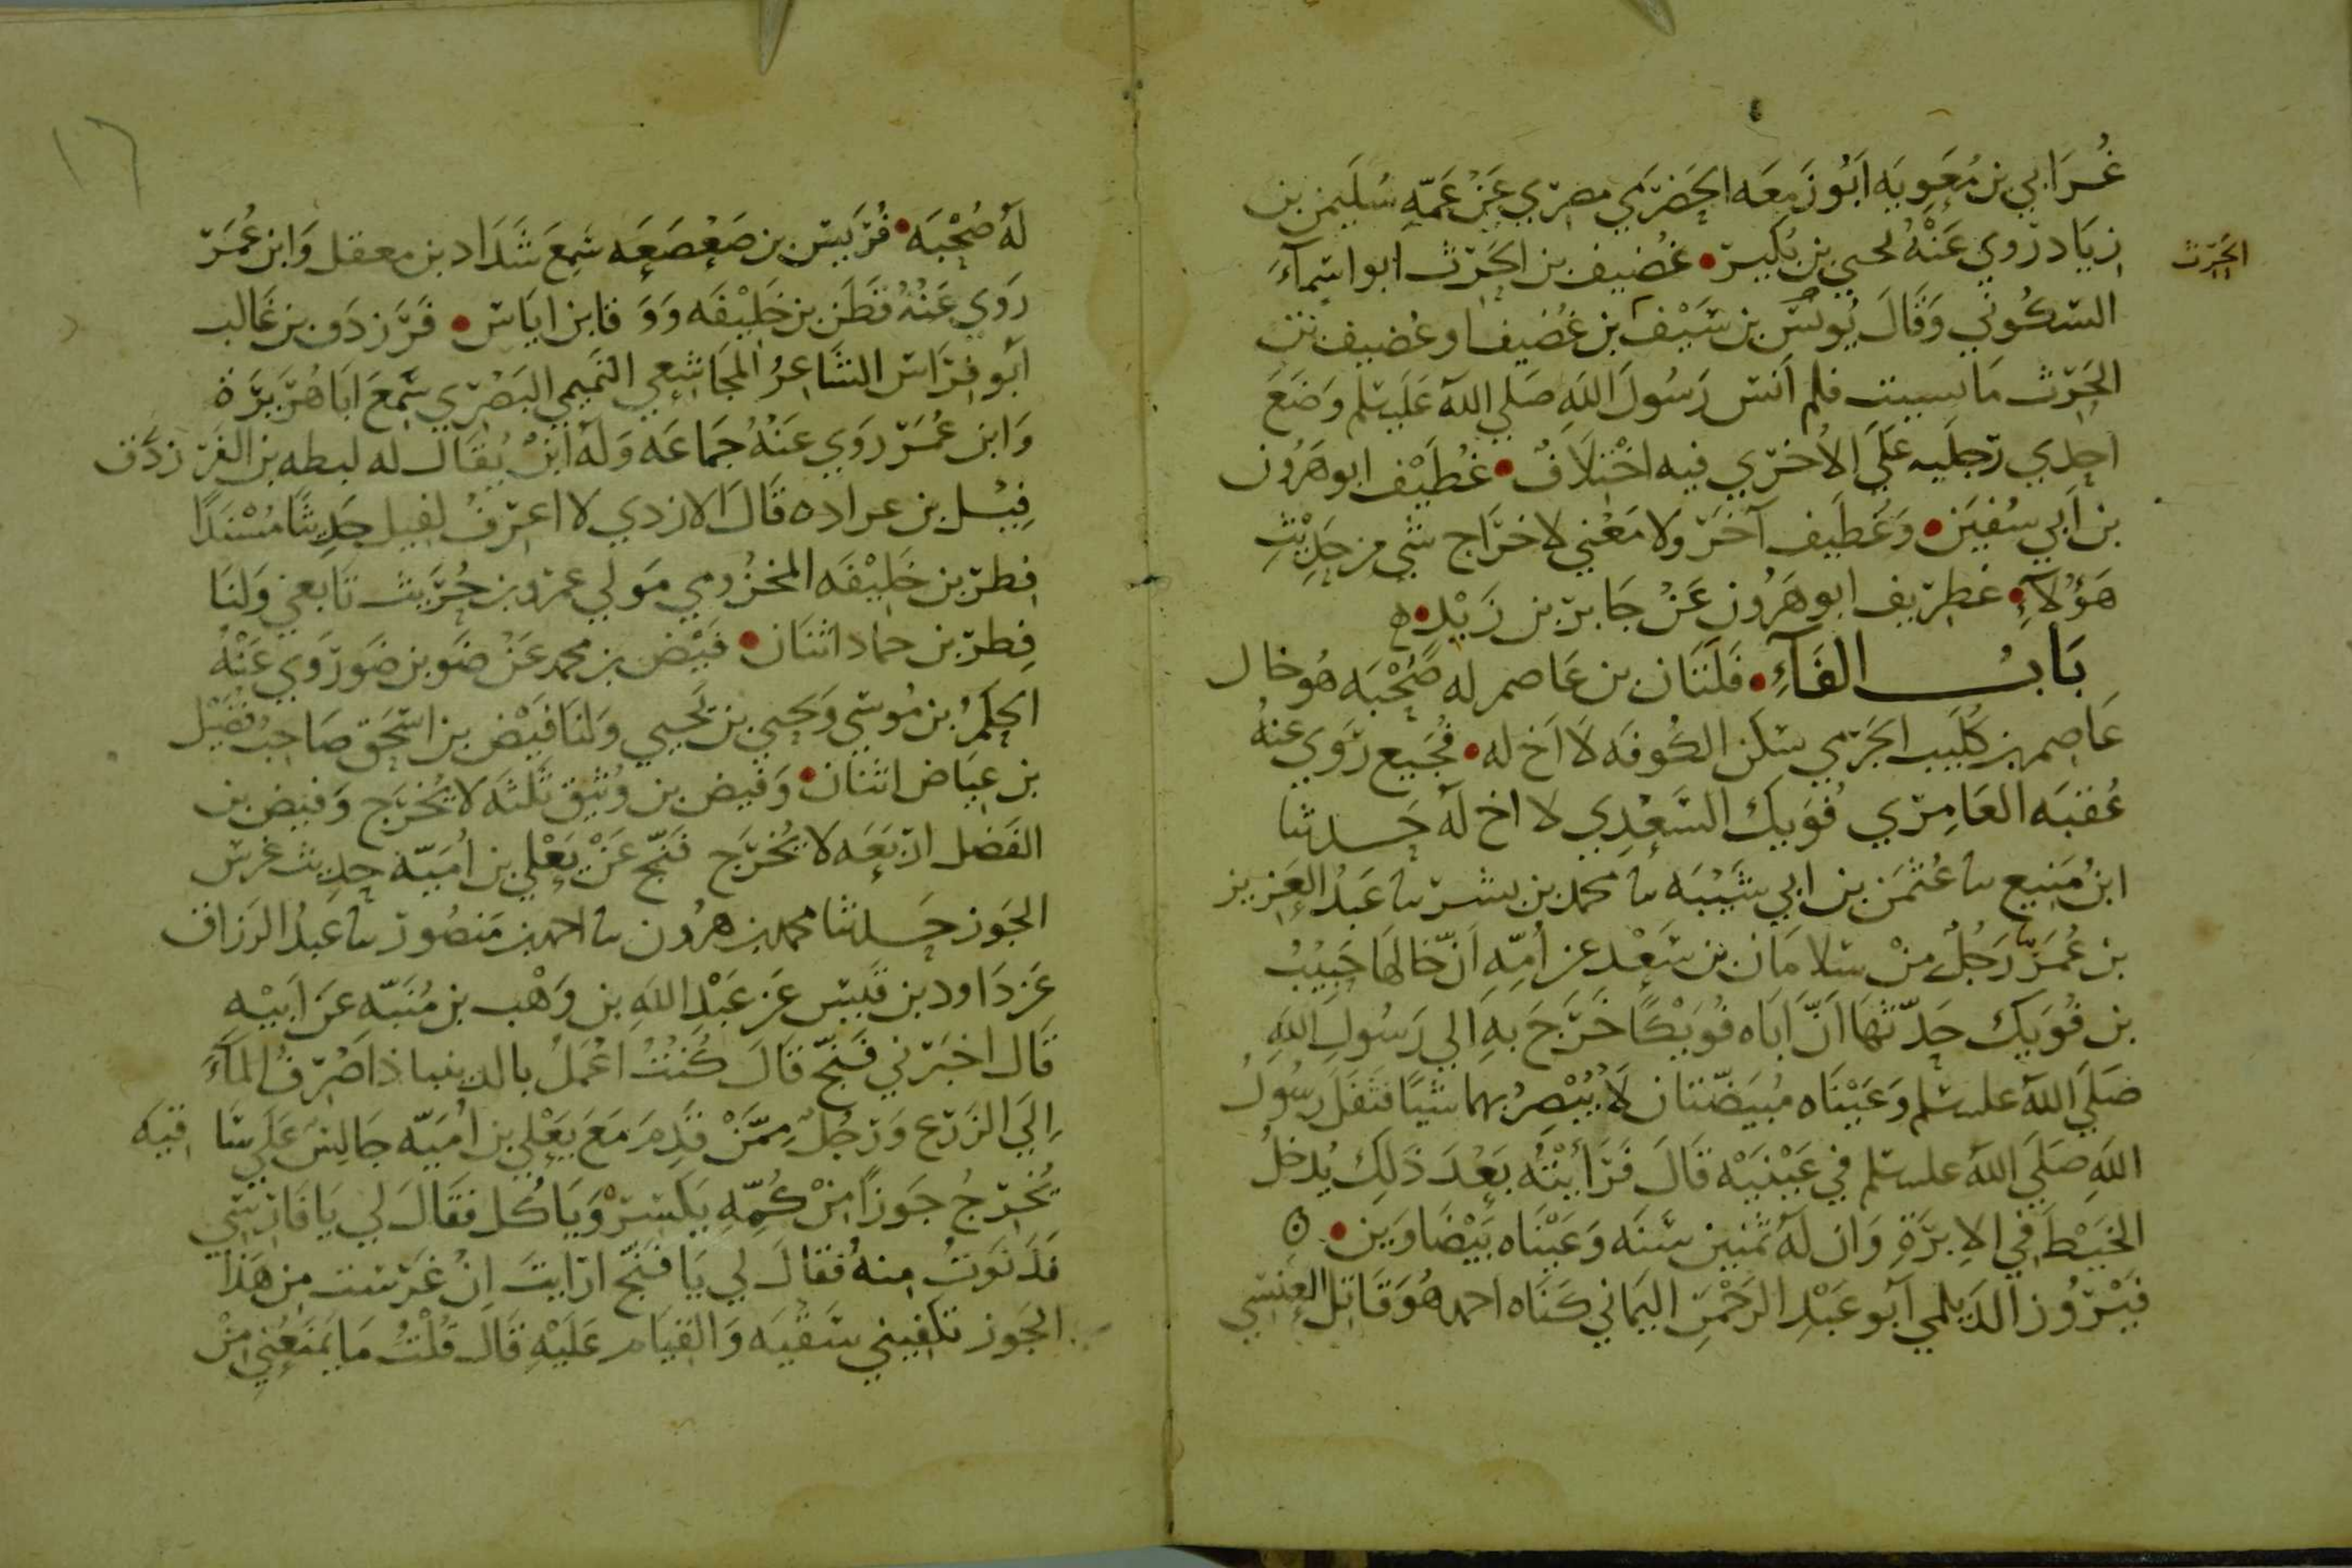 غُرَابي بن مُعَويَه ابُو زَمعَه الحَضرَمي مصري عَنْ عَمّهِ سُليمن بن
زيَاد روي عَنْهُ يحيى بن بُكير • غُضيف بن الحَرث ابو اسمآءَ
الحَرث
السكُوني وَقَالَ يُونس بن سَيْف بن غُضيف او غضيف بن
الحَرث مَا نسيت فلم اَنس رَسُولَ اللهِ صَلي اللهُ عَليه سلم وَضَعَ
احدي رجليه عَلَى الأُخري فيه اخْتلاَفٌ • غُطَيْف ابو هَرُون
بن اَبي سُفيَن • وَغُطَيف آخَر ولا مَعْني لاخرَاج شي من حَدِيْثِ
هَؤُلآءِ • غطريف ابو هَرُون عَنْ جَابر بن زَيْد • ه
بَابُ الفَآءِ • فَلَتَان بن عَاصم له صُحْبَه هُو خال
عَاصم بن كُلَيب الجَرمي سَكَن الكُوفَه لاَ اَخ له • فُجَيع رَوي عنهُ
عُقبَه العَامِري فُوَيك السَّعْدِي لا اخ لَه حَدثنا
ابنُ مَنيع نا عُثمَن بن ابي شَيْبَه نا محمد بن بشر نا عَبدُ العَزيز
بن عُمَر رَجُلٌ منْ سَلامَان بن سَعْد عن اُمّهِ اَنّ خالهَا حَبيْبُ
بن فُوَيك حَدّثهَا اَنّ اَبَاه فُوَيْكًا خَرَجَ بهِ الي رَسُولِ اللهِ
صَلَى اللهُ عليه سلم وَعَيْنَاه مُبيَضّتان لاَ يُبْصِرُ بهما شيًا فَتَفَلَ رسُولُ
اللهِ صَلَى اللهُ عليه سلم في عَيْنَيْه قَالَ فَرَأيْتُه بَعْدَ ذَلِكَ يُدخلُ
الخَيْطَ في الابرَةِ وَان لَهُ ثمنين سَنَه وَعَيْنَاه بَيْضَاوَين • ه
فَيْرُوز الدَيلمي اَبو عَبْدِ الرَحْمَن اليمَاني كنَاه احمد هُوَ قَاتل العنسي
١٦
لَهُ صُحْبَه • فُرَيس بن صَعْصَعَه سَمِعَ شَدَاد بن معقل وَابن عُمَر
رَوي عَنهُ قَطَن بن خَليْفَه وَوَقا بن ايَاس • فَرَزدَق بن غَالب
اَبو فرَاس الشَاعرُ المُجَاشعي التَميمي البَصْري سَمِعَ ابَا هُرَيرَة
وَابن عُمَر روَي عَنهُ جمَاعَه وَلَهُ ابنٌ يُقَال له لبطه بن الفَرزدَق
فِيْل بن عراده قَالَ الازدي لا اعرفُ لفيل حَدِيثًا مُسْنَدًا
فِطر بن خَليْفَه المخزُومي مَولي عمرو بن حُرَيث تَابعي وَلنَا
فِطر بن حماد اثنَان • فَيْض بن محمد عَنْ ضَو بن ضَو رَوي عَنْهُ
الحكَمُ بن مُوسى وَيحيى بن يَحيي وَلنَا فَيْض بن اسحَق صَاحبُ فُضَيْل
بن عيَاض اثنَان • وَفيض بن وُثيق ثَلثَه لا يُخرَج وَفيض بن
الفَضل اربَعَه لا يُخرَج فَنّج عَنْ يَعْلي بن اُميّه حديث غرس
الجَوز حَدثنا محمد بن هرُون نا احمد بن مَنصُور نا عبدُ الرَزاق
عَن دَاود بن قَيس عَن عَبْد اللهِ بن وَهْب بن مُنَبّه عَن اَبيْه
قَال اخبَرني فَنّج قَالَ كُنتُ اعْمَلُ بالدينباذ اَصْرفُ المآءَ
اِلَى الزَرع وَرجُلٌ مِمّنْ قدِمَ مَعَ يَعْلي بن اُميّه جَالِسٌ عَلَى سَاقيَه
يُخرجُ جَوزًا مِنْ كُمّهِ يَكسرْ وَيَاكُل فقَالَ لي يَا فَارسي
فَدَنَوتُ منهُ فقَالَ لي يَا فَنّج ارايتَ اِنْ غَرَست من هَذا
الجَوز تَكفيني سَقْيَه وَالقيَام عَلَيْهِ قَالَ قُلْتُ مَا يَمنَعُني مِنْ